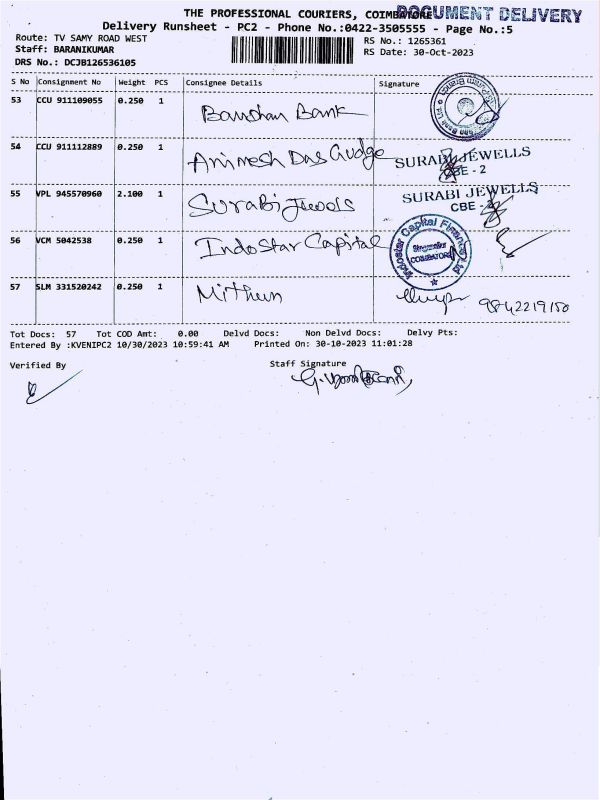 THE PROFESSIONAL COURIERS, COIMBATORE
DOCUMENT DELIVERY
Delivery Runsheet - PC2 - Phone No.:0422-3505555 - Page No.:5
Route: TV SAMY ROAD WEST
RS No.: 1265361
Staff: BARANIKUMAR
RS Date: 30-Oct-2023
DRS No.: DCJB126536105
S No Consignment No Weight PCS Consignee Details Signature
53 CCU 911109055 0.250 1 Bandhan Bank
54 CCU 911112889 0.250 1 Animesh Das
SURABI JEWELLS
CBE - 2
55 VPL 945570960 2.100 1 Surabi Jewels
SURABI JEWELLS
CBE - 2
56 VCM 5042538 0.250 1 IndoStar Capital
Indostar Capital Finance Ltd
COIMBATORE
57 SLM 331520242 0.250 1 Mithun
9842219150
Tot Docs: 57 Tot COD Amt: 0.00 Delvd Docs: Non Delvd Docs: Delvy Pts:
Entered By :KVENIPC2 10/30/2023 10:59:41 AM Printed On: 30-10-2023 11:01:28
Verified By
Staff Signature